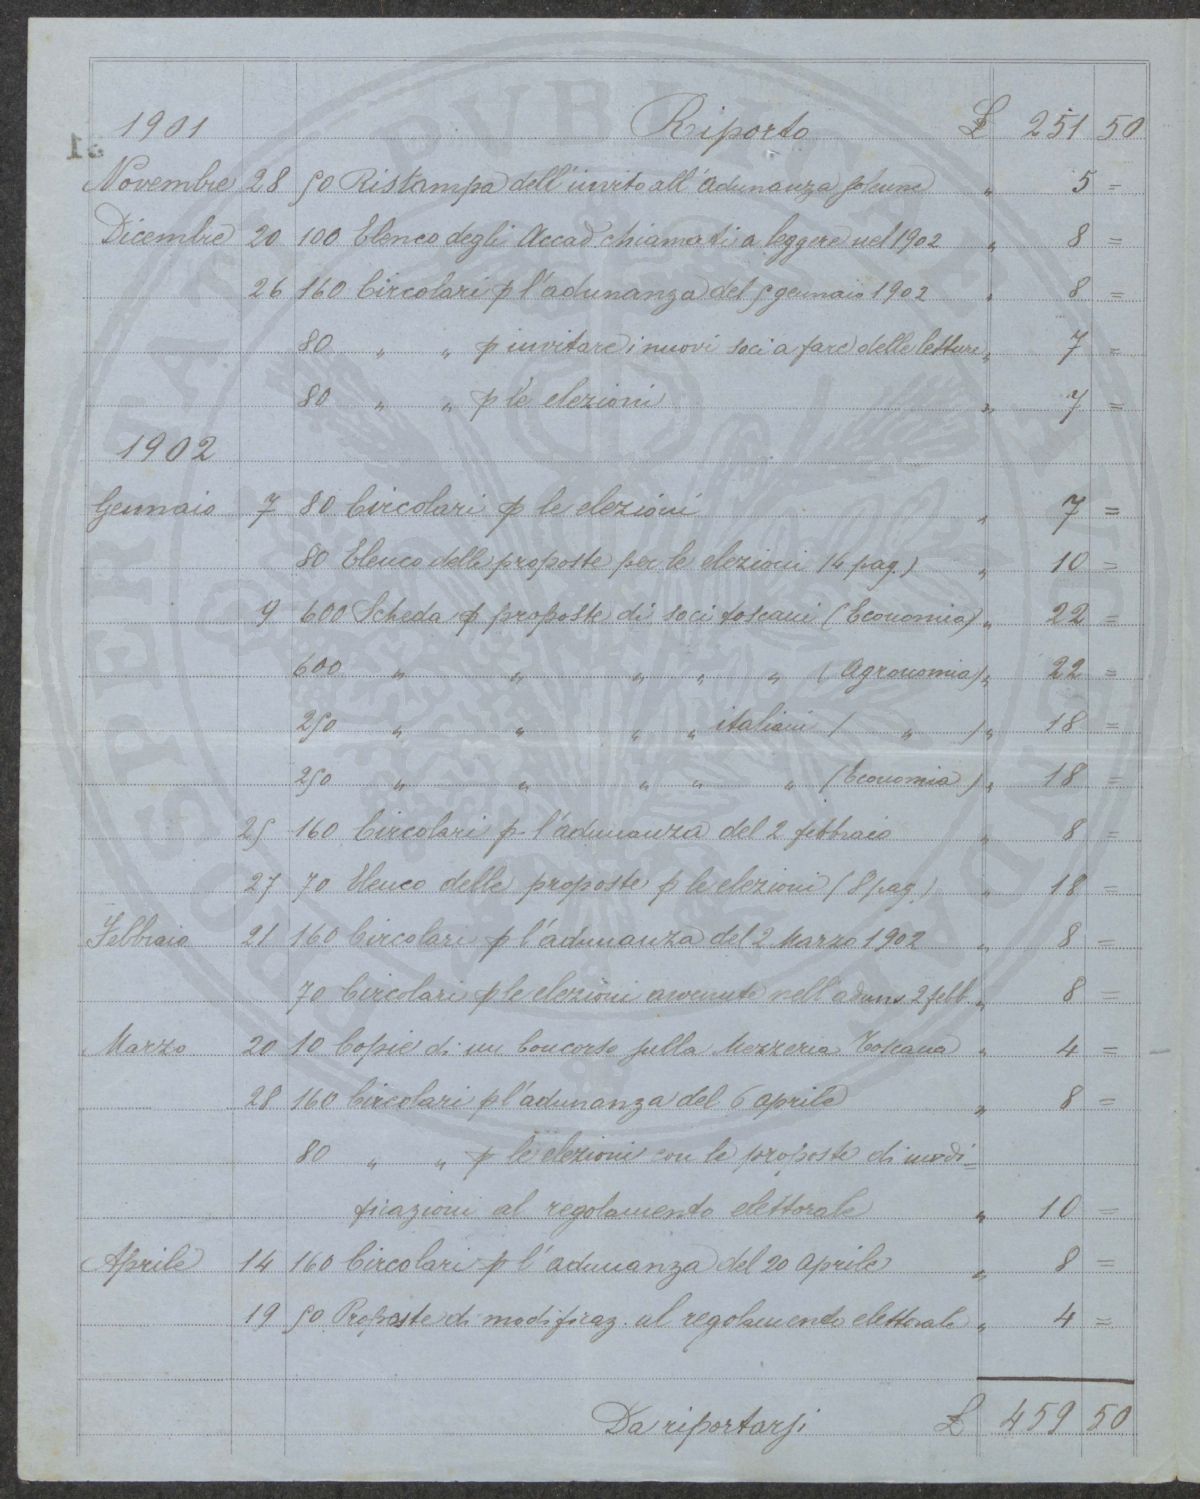 1901 Riporto £ 251 50
Novembre 28 50 Ristampa dell'invito all'adunanza solenne " 5 =
Dicembre 20 100 Elenco degli Accad chiamati a leggere nel 1902 " 8 =
26 160 Circolari p l'adunanza del 5 gennaio 1902 " 8 =
80 " " p invitare i nuovi soci a fare delle letture " 7 =
80 " " p le elezioni " 7 =
1902
Gennaio 7 80 Circolari p le elezioni " 7 =
80 Elenco delle proposte per le elezioni (4 pag.) " 10 =
9 600 Scheda p proposte di soci toscani (Economia) " 22 =
600 " " " " " (Agronomia) " 22 =
250 " " " " italiani ( " ) " 18 =
250 " " " " " (Economia) " 18 =
25 160 Circolari p l'adunanza del 2 febbraio " 8 =
27 70 Elenco delle proposte p le elezioni (8 pag.) " 18 =
Febbraio 21 160 Circolari p l'adunanza del 2 Marzo 1902 " 8 =
70 Circolari p le elezioni avvenute nell'adune 2 febb. " 8 =
Marzo 20 10 Copie di un Concorso sulla Mezzeria Toscana " 4 =
28 160 Circolari p l'adunanza del 6 aprile " 8 =
80 " " p le elezioni con le proposte di modi=
ficazioni al regolamento elettorale " 10 =
Aprile 14 160 Circolari p l'adunanza del 20 aprile " 8 =
19 50 Proposte di modificaz. al regolamento elettorale " 4 =
Da riportarsi £ 459 50
PROSPERITATI PVBLICAE AVGENDAE